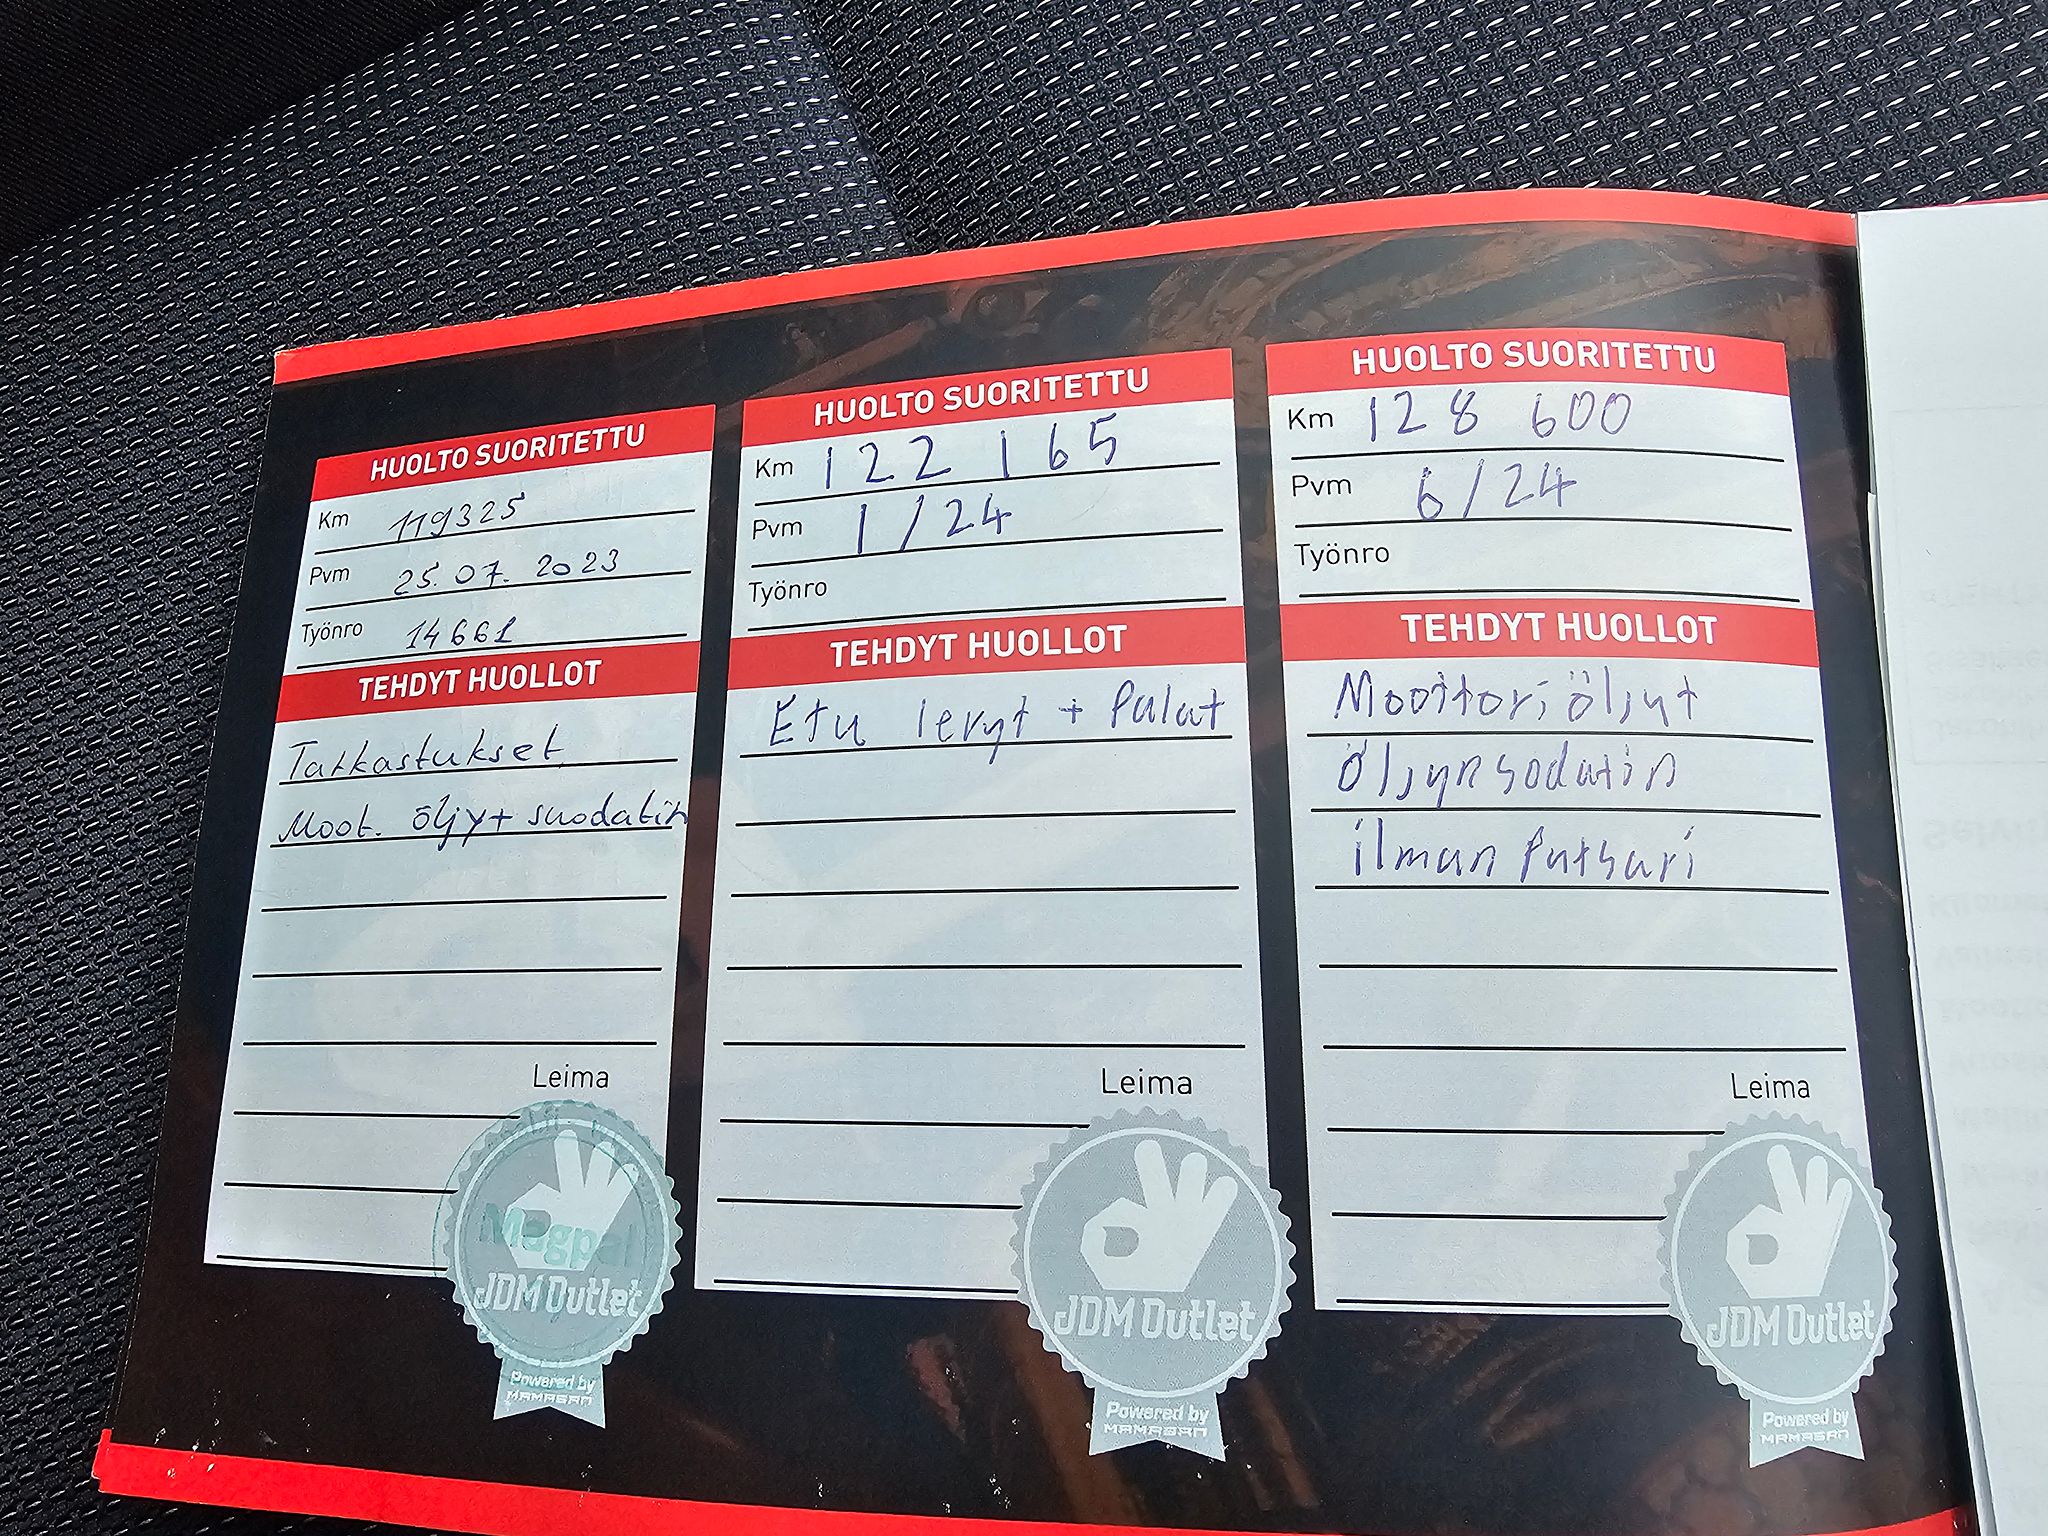 HUOLTO SUORITETTU
Km 119325
Pvm 25.07.2023
Työnro 14661
TEHDYT HUOLLOT
Tarkastukset
Moot. öljy+ suodatin
Leima
Magpal
JDM Outlet
Powered by
MAMASAN
HUOLTO SUORITETTU
Km 122 165
Pvm 1/24
Työnro
TEHDYT HUOLLOT
Etu levyt + Palat
Leima
JDM Outlet
Powered by
MAMASAN
HUOLTO SUORITETTU
Km 128 600
Pvm 6/24
Työnro
TEHDYT HUOLLOT
Moottoriöljyt
Öljynsodatin
ilman Putsari
Leima
JDM Outlet
Powered by
MAMASAN